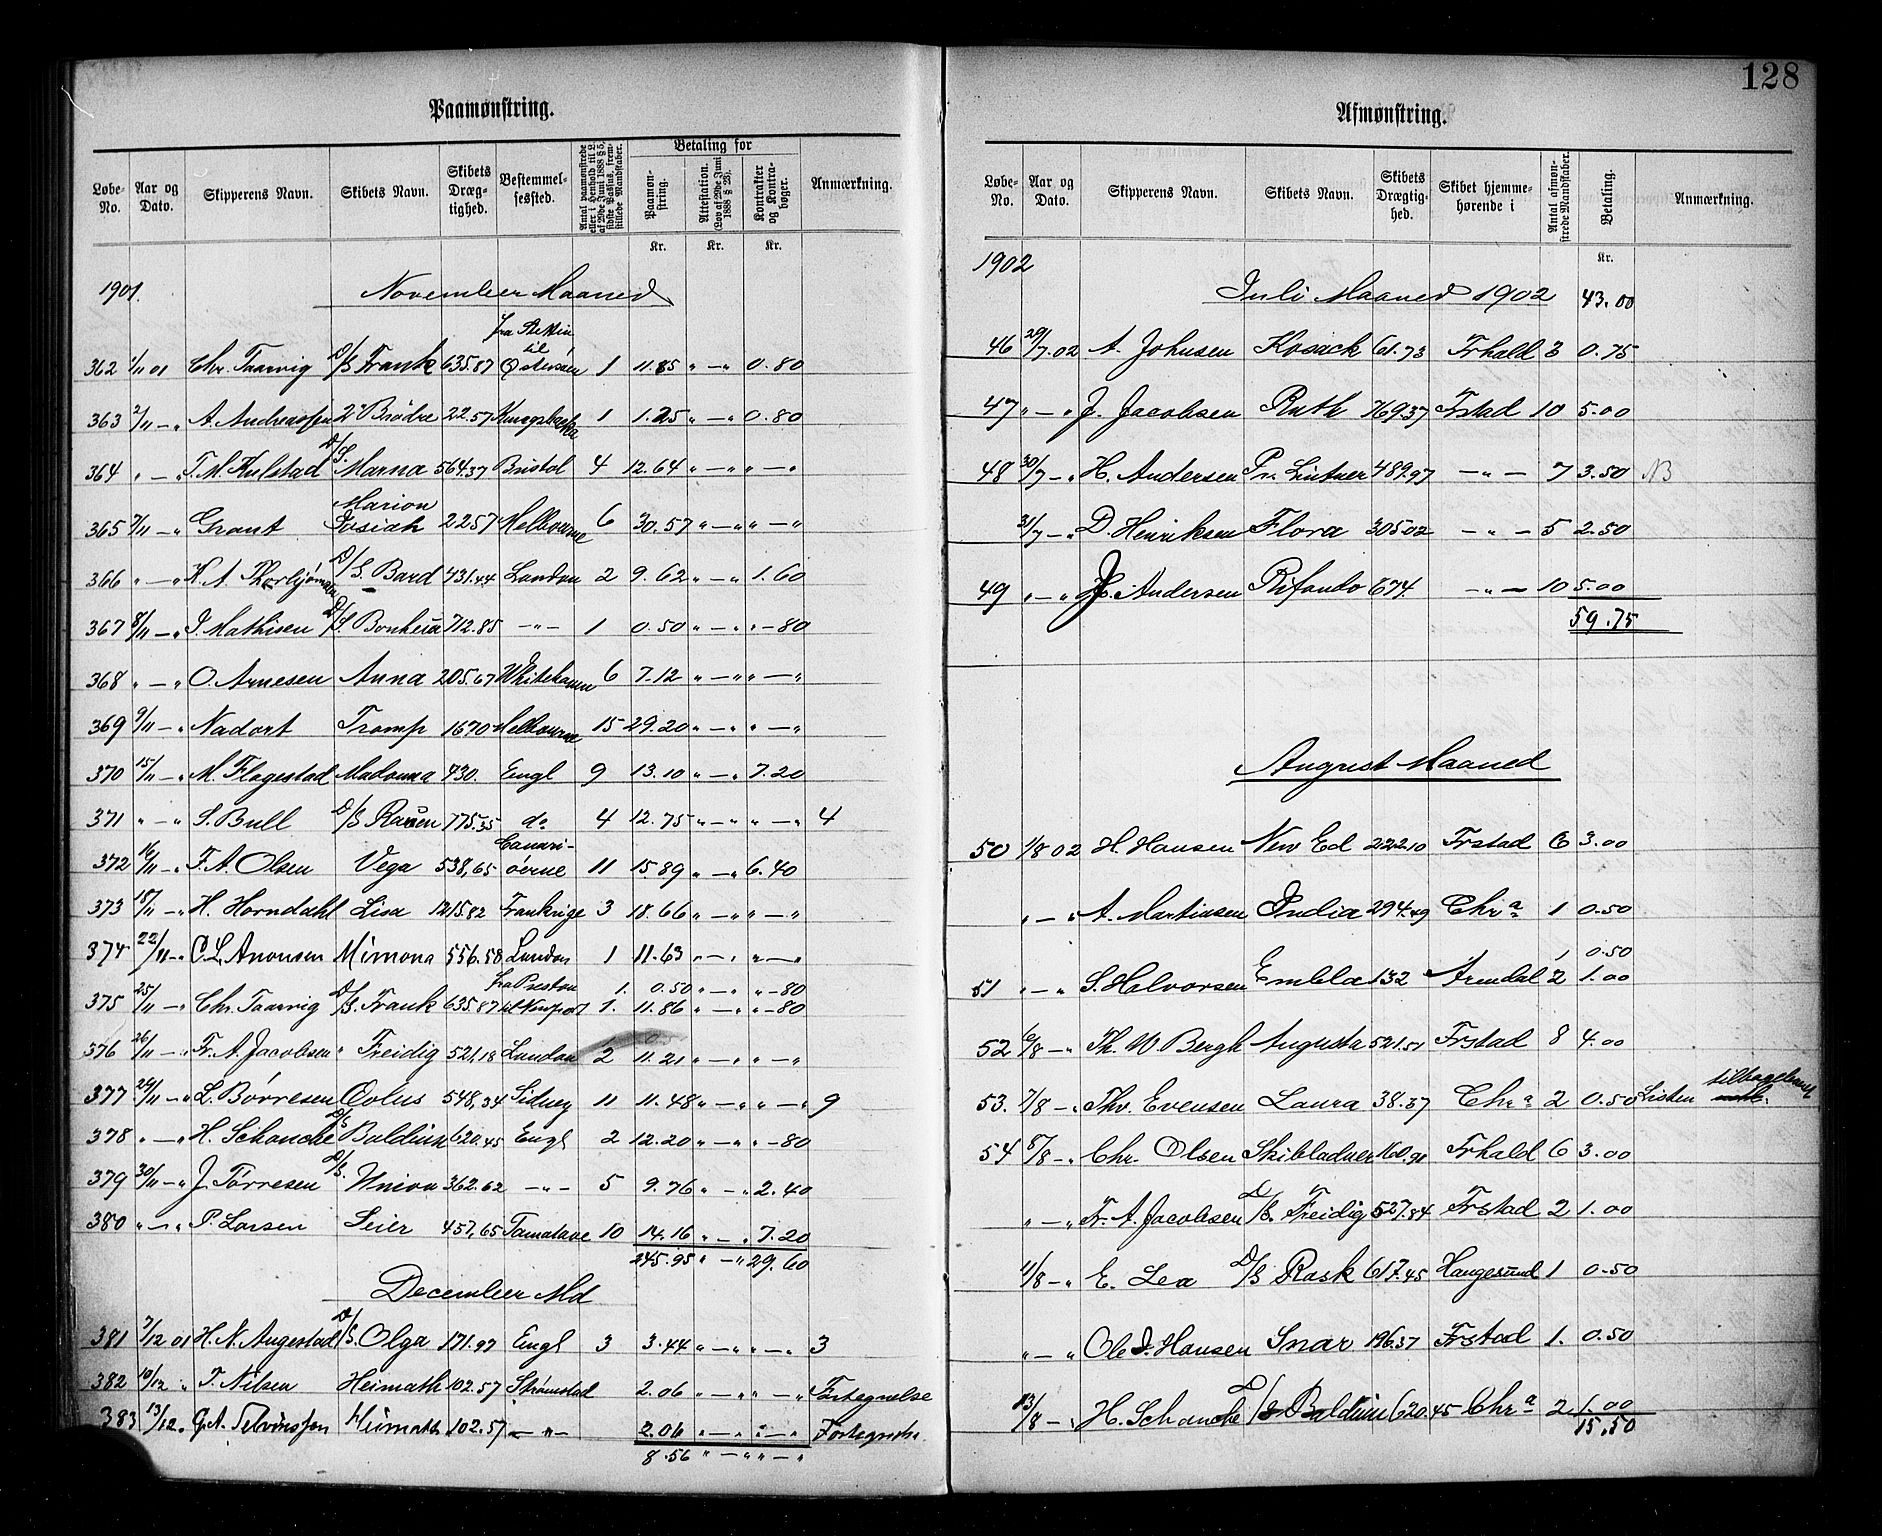 128
Paamønstring.
Løbe-No. Aar og Dato. Skipperens Navn. Skibets Navn. Skibets Drægtighed. Bestemmelsessted. Antal paamønstrede eller i Henhold til L. af 29de Juni 1888 § 5, sidste Passus, fremstillede Mandskaber. Betaling for Paamønstring. Attestation. (Lov af 29de Juni 1888 § 25). Kontrakter og Kontrabøger. Anmærkning.
Kr. Kr. Kr.
1901. November Maaned
362 1/11 01 Chr. Taarvig D/S Frank 635.87 fra Stettin til 1 11.85 " — " 0.80
363 2/11 — " A. Andreassen 2 Brødre 22.57 Kungsbacka 1 1.25 " — " 0.80
364 " — " T. M. Kulstad D/S. Marna 564.37 Bristol 4 12.64 " — " " — "
365 7/11 — " Grant Marion Josiah 2257 Melbourne 6 30.57 " — " " — "
366 " — " K. A. Thorbjørnsen D/S. Bard 431.44 London 2 9.62 " — " 1.60
367 8/11 — " J. Mathisen D/S. Bonheur 712.85 — " — 1 0.50 " — " " — 80
368 " — " O. Arnesen Anna 205.67 Whitehaven 6 7.12 " — " " — "
369 9/11 — " Nadort Tromp 1670 Melbourne 15 29.20 " — " " — "
370 15/11 — " M. Flagestad Madonna 430. Engl 9 13.10 " — " 7.20
371 " — " S. Bull D/S 775.35 do 4 12.75 " — " " — " 4
372 16/11 — " F. A. Olsen Vega 538,65 Canariøerne 11 15.89 " — " 6.40
373 18/11 — " H. Horndahl Lisa 1215.82 Frankrige 3 18.66 " — " " — "
374 22/11 — " C. L. Anonsen Mimona 556.58 London 1 11.63 " — " " — "
fra Preston 1. 0.50 " — " " — 80
375 25/11 — " Chr. Taarvig D/S. Frank 635.87 til Newport 1. 11.86 " — " " — 80
376 26/11 — " Fr. A. Jacobsen Freidig 521,18 London 2 11.21 " — " " — "
377 29/11 — " L. Børresen Æolus 548,34 Sidney 11 11.48 " — " " — " 9
378 " — " H. Schanche D/S Balduin 620.45 Engl 2 12.20 " — " " — 80
379 30/11 — " J. Tørresen D/S. Union 362.62 — " — 5 9.76 " — " 2.40
380 " — " P. Larsen Seier 457,65 Tamatave 10 14.16 " — " 7.20
245.95 " — " 29.60
December Md
381 7/12 01 H. N. Augestad D/S. Olga 171.97 Engl 3 3.44 " — " " — " 3
382 10/12 " T. Nilsen Heimath 102.57 Strømstad 2.06 " — " " — " Fortegnelse
383 13/12. G. A. Heimath 102.57 — " — 2.06 " — " " — "
8.56 " — " " — "
Afmønstring.
Løbe-No. Aar og Dato. Skipperens Navn. Skibets Navn. Skibets Drægtighed. Skibet hjemmehørende i Antal afmønstrede Mandskaber. Betaling. Anmærkning.
Kr.
1902
Juli Maaned 1902 43.00
46 29/7.02 A. Johnsen Kosack 61.73 Frhald 3 0.75
47 " — " J. Jacobsen Ruth 769.37 Frstad 10 5.00
48 30/7 — " H. Andersen Pr. Lütner 489.97 — " — 7 3.50 NB
31/7 — " D. Henriksen Flora 305.02 — " — 5 2.50
49 " — " H. Andersen Rifondo 674. — " — 10 5.00
59.75
August Maaned
50 1/8 02 H. Hansen New Ed 222.10 Frstad 6 3.00
" — " A. Martinsen India 294.49 Chra 1 0.50
1 0.50
51 " — " S. Halvorsen Embla 132 Arndal 2 1.00
52 6/8 — " Th. W. Bergh Augusta 521.51 Frstad 8 4.00
53. 7/8 — " Thv. Evensen Laura 38.57 Chra 2 0.50 Listen
54 8/8 — " Chr. Olsen Skibladner 160.91 Frhald 6 3.00
" — " Fr. A. Jacobsen D/S. Freidig 527.84 Frstad 2 1.00
11/8 — " E. Lea D/S Rask 617.45 Haugesund 1 0.50
" — " Ole J. Hansen Snar 196.37 Frstad 1. 0.50
13/8 — " H. Schanche D/S Balduin 620.45 Chra 2 1.00
15.50